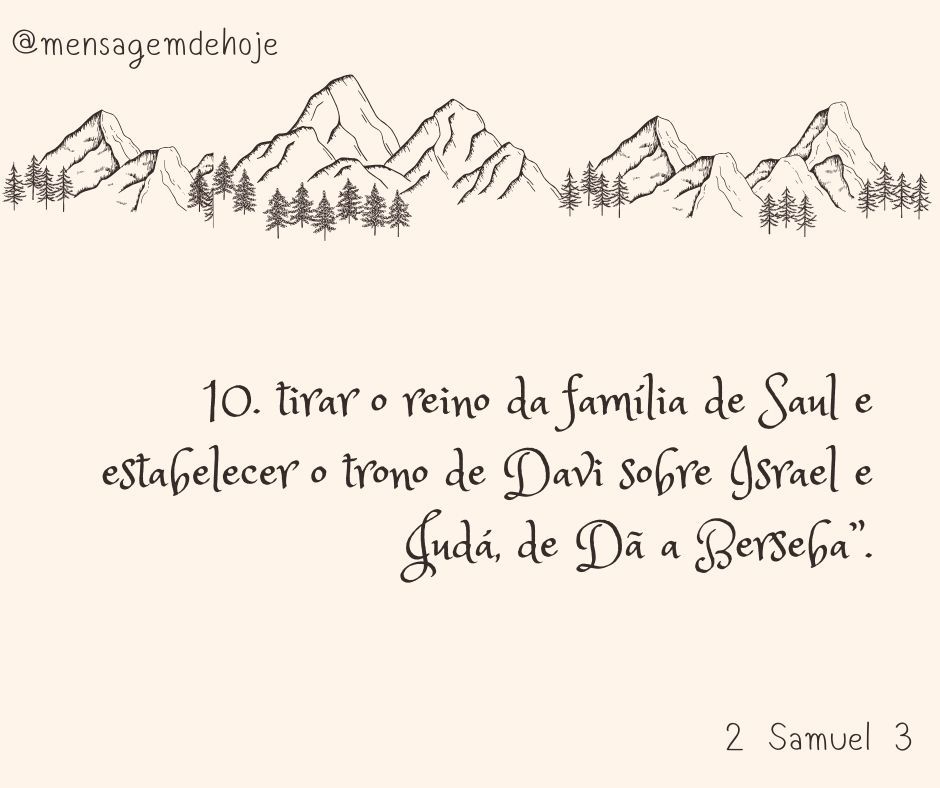 @mensagemdehoje
10. tirar o reino da família de Saul e
estabelecer o trono de Davi sobre Israel e
Judá, de Dã a Berseba”.
2 Samuel 3